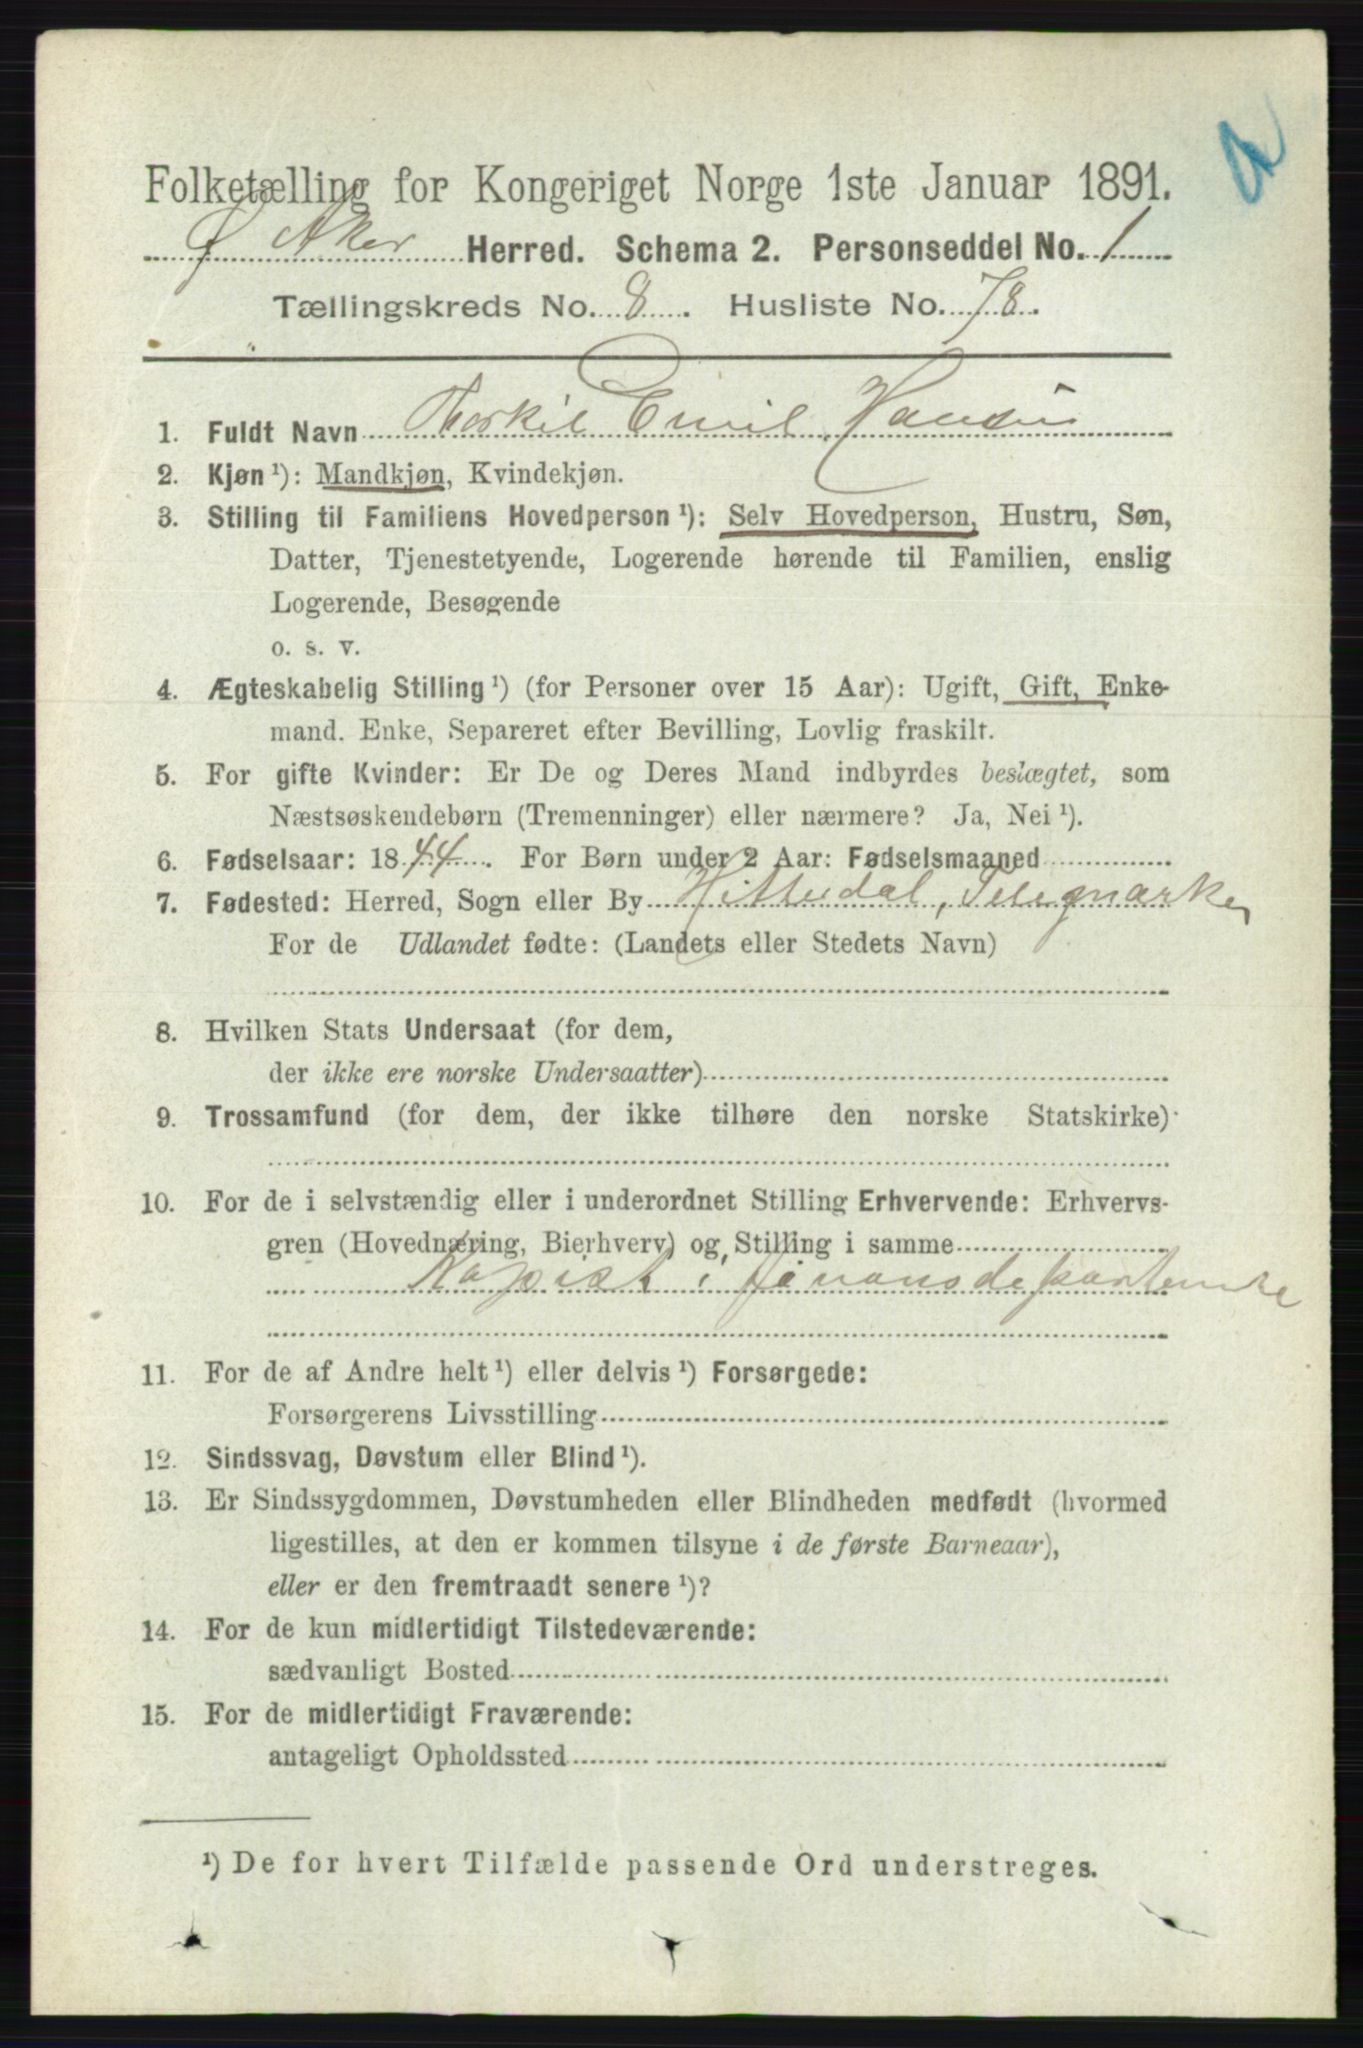 a
Folketælling for Kongeriget Norge 1ste Januar 1891.
Ø. Aker Herred. Schema 2. Personseddel No. 1
Tællingskreds No. 8. Husliste No. 78.
1. Fuldt Navn Thorkil Emil Hansen
2. Kjøn ¹): Mandkjøn, Kvindekjøn.
3. Stilling til Familiens Hovedperson ¹): Selv Hovedperson, Hustru, Søn,
Datter, Tjenestetyende, Logerende hørende til Familien, enslig
Logerende, Besøgende
o. s. v.
4. Ægteskabelig Stilling ¹) (for Personer over 15 Aar): Ugift, Gift, Enke-
mand. Enke, Separeret efter Bevilling, Lovlig fraskilt.
5. For gifte Kvinder: Er De og Deres Mand indbyrdes beslægtet, som
Næstsøskendebørn (Tremenninger) eller nærmere? Ja, Nei ¹).
6. Fødselsaar: 1844. For Børn under 2 Aar: Fødselsmaaned
7. Fødested: Herred, Sogn eller By Hitterdal, Telemarken
For de Udlandet fødte: (Landets eller Stedets Navn)
8. Hvilken Stats Undersaat (for dem,
der ikke ere norske Undersaatter)
9. Trossamfund (for dem, der ikke tilhøre den norske Statskirke)
10. For de i selvstændig eller i underordnet Stilling Erhvervende: Erhvervs-
gren (Hovednæring, Bierhverv) og Stilling i samme
Kopist i Finansdepartemte
11. For de af Andre helt ¹) eller delvis ¹) Forsørgede:
Forsørgerens Livsstilling
12. Sindssvag, Døvstum eller Blind ¹).
13. Er Sindssygdommen, Døvstumheden eller Blindheden medfødt (hvormed
ligestilles, at den er kommen tilsyne i de første Barneaar),
eller er den fremtraadt senere ¹)?
14. For de kun midlertidigt Tilstedeværende:
sædvanligt Bosted
15. For de midlertidigt Fraværende:
antageligt Opholdssted
¹) De for hvert Tilfælde passende Ord understreges.